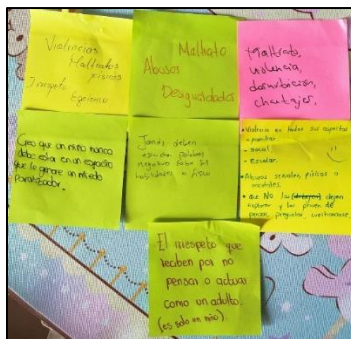 Violencias
Maltratos
físicos
Irrespeto
Egoísmo
Maltrato
Abusos
Desigualdades
Maltrato,
violencia,
discriminación,
chantajes,
Creo que un niño nunca
debe estar en un espacio
que le genere un miedo
paralizador.
Jamás deben
escuchar palabras
negativas sobre sus
habilidades o físico
• Violencia en todos sus aspectos
• familiar
• social,
• Escolar.
• Abusos sexuales, físicos o
mentales.
• que NO los dejen
explorar y los priven de
pensar, preguntar
El irrespeto que
reciben por no
pensar o actuar
como un adulto.
(es solo un niño).